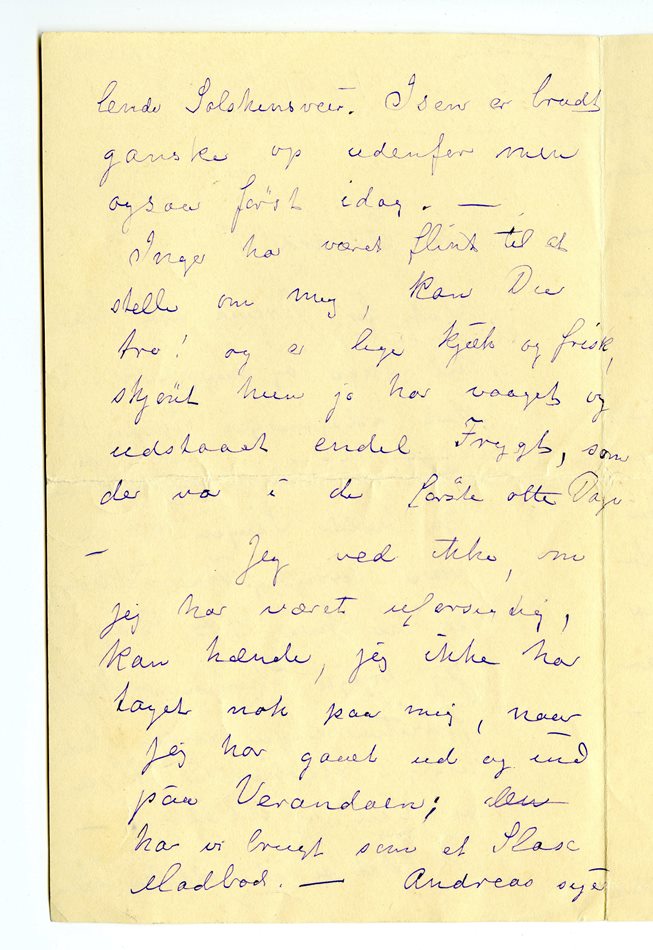 lende Solskinsveir. Isen er brudt
ganske op udenfor men
ogsaa først idag. —
Inge har været flink til at
stelle om mig, kan Du
tro! og er lige kjæk og frisk,
skjønt hun jo har vaaget og
udstaaet endel Frygt, som
der var i de første otte Dage
— Jeg ved ikke, om
jeg har været uforsigtig,
kan hænde, jeg ikke har
taget nok paa mig, naar
jeg har gaaet ud og ind
paa Verandaen; den
har vi brugt som et Slags
Madbod. — Andreas syr